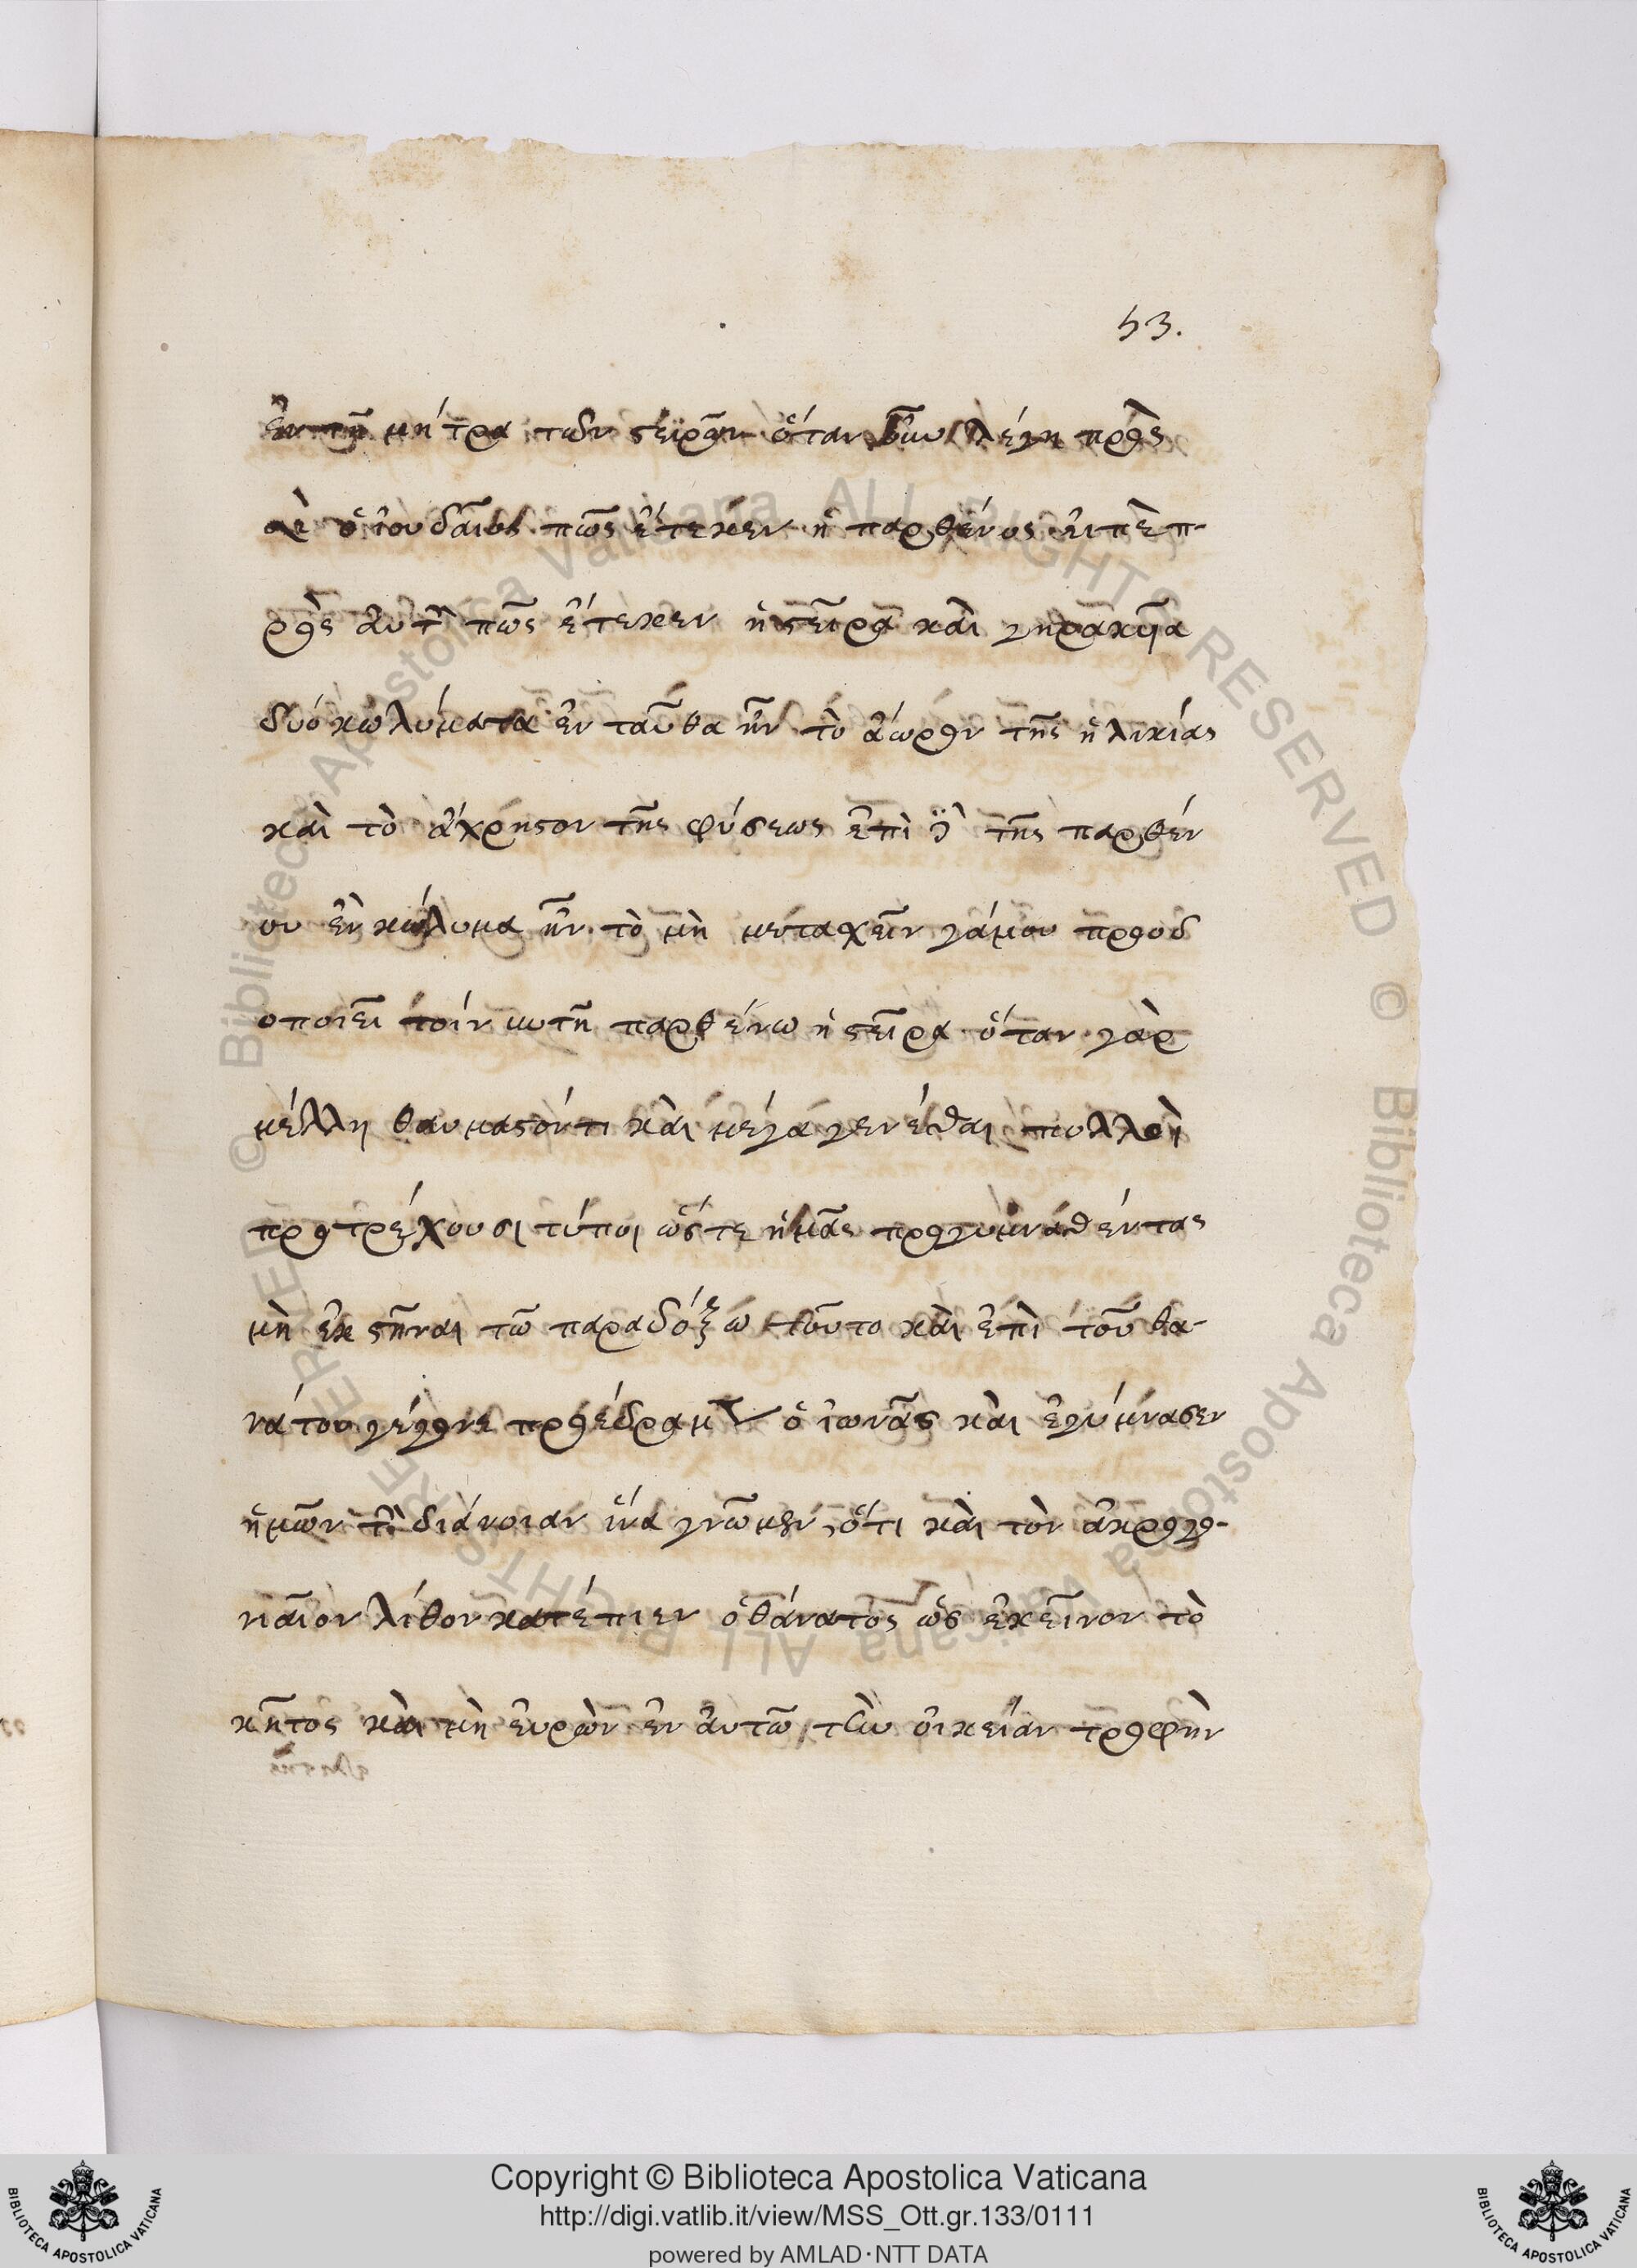 53.
ἐν τῇ μήτρα τῶν στειρῶν ὅταν οὖν λέγη πρὸς
σὲ ὁ ἰουδαῖος πῶς ἔτεκεν ἡ παρθένος εἰπὲ π-
ρὸς αὐτὸν πῶς ἔτεκεν ἡ στεῖρα καὶ γηραλαία
δύο κωλύματα ἐν ταῦθα ἦν τὸ ἄωρον τῆς ἡλικίας
καὶ τὸ ἄχρηστον τῆς φύσεως ἐπὶ δὲ τῆς παρθέν
ου ἓν κώλυμα ἦν τὸ μὴ μετασχεῖν γάμου προοδ
οποιεῖ τοίνυν τῆ παρθένω ἡ στεῖρα ὅταν γὰρ
μέλλη θαυμαστόν τι καὶ μέγα γενέσθαι πολλοὶ
προτρέχουσι τύποι ὥστε ἡμᾶς προγυμνασθέντας
μὴ ἐκστῆναι τῶ παραδόξω τοῦτο καὶ ἐπὶ τοῦ θα-
νάτου γέγονε προέδραμεν ὁ ἰωνᾶς καὶ ἐγύμνασεν
ἡμῶν τὴν διάνοιαν ἵνα γνῶμεν, ὅτι καὶ τὸν ἀκρογο-
νιαῖον λίθον κατέπιεν ὁ θάνατος ὡς ἐκεῖνον τὸ
κῆτος καὶ μὴ εὑρὼν ἐν αὐτῶ τὴν οἰκείαν τροφὴν
© Biblioteca Apostolica Vaticana ALL RIGHTS RESERVED © Biblioteca Apostolica Vaticana ALL RIGHTS RESERVED
Copyright © Biblioteca Apostolica Vaticana
http://digi.vatlib.it/view/MSS_Ott.gr.133/0111
powered by AMLAD·NTT DATA
BIBLIOTECA APOSTOLICA VATICANA
BIBLIOTECA APOSTOLICA VATICANA